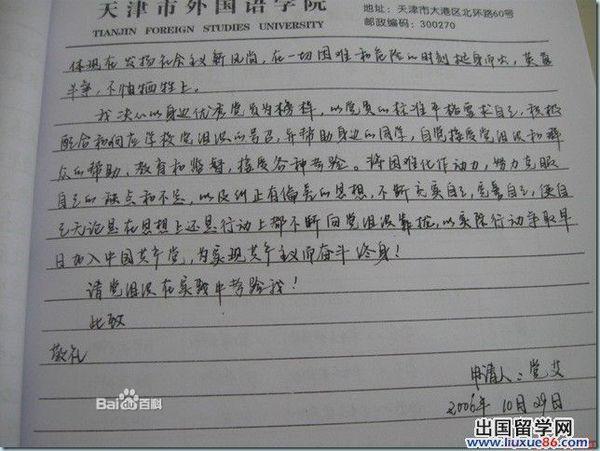 天津市外国语学院
TIANJIN FOREIGN STUDIES UNIVERSITY
地址:天津市大港区北环路60号
邮政编码:300270
体现在发扬社会主义新风尚,在一切困难和危险的时刻挺身而出,英勇
斗争,不怕牺牲上。
我决心以身边优秀党员为榜样,以党员的标准严格要求自己,积极
配合和响应学校党组织的号召,并帮助身边的同学,自觉接受党组织和群
众的帮助、教育和监督,接受各种考验。将困难化作动力,努力克服
自己的缺点和不足,以及纠正有偏差的思想,不断充实自己,完善自己,使自
己无论是在思想上还是行动上都不断向党组织靠拢,以实际行动争取早
日加入中国共产党,为实现共产主义而奋斗终身!
请党组织在实践中考验我!
此致
敬礼
申请人:党艾
2006年10月29日
Bai百科
出国留学网
www.liuxue86.com